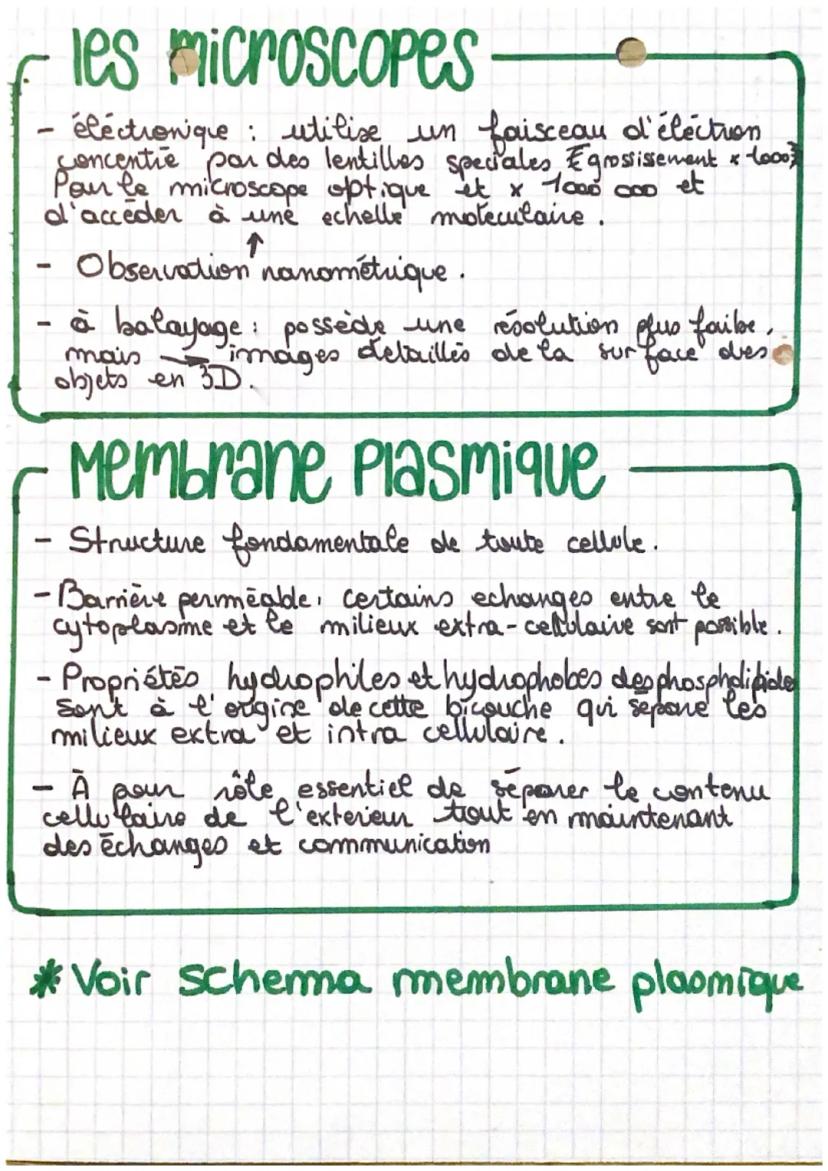 les microscopes
- éléctronique : utilise un faisceau d'éléctron
concentré par des lentilles speciales (grossissement x 1000)
Pour le microscope optique et x 1000 000 et
d'accéder à une echelle moleculaire.
↑
- Observation nanométrique.
- à balayage : possède une résolution plus faible,
mais → images détaillés de la surface des
objets en 3D.
Membrane Plasmique
- Structure fondamentale de toute cellule.
- Barrière perméable, certains echanges entre le
cytoplasme et le milieux extra-cellulaire sont possible.
- Propriétés hydrophiles et hydrophobes des phospholipide
sont à l'origine de cette bicouche qui sépare les
milieux extra et intra cellulaire.
- À pour rôle essentiel de séparer le contenu
cellulaire de l'exterieur tout en maintenant
des échanges et communication
* Voir schema membrane plasmique